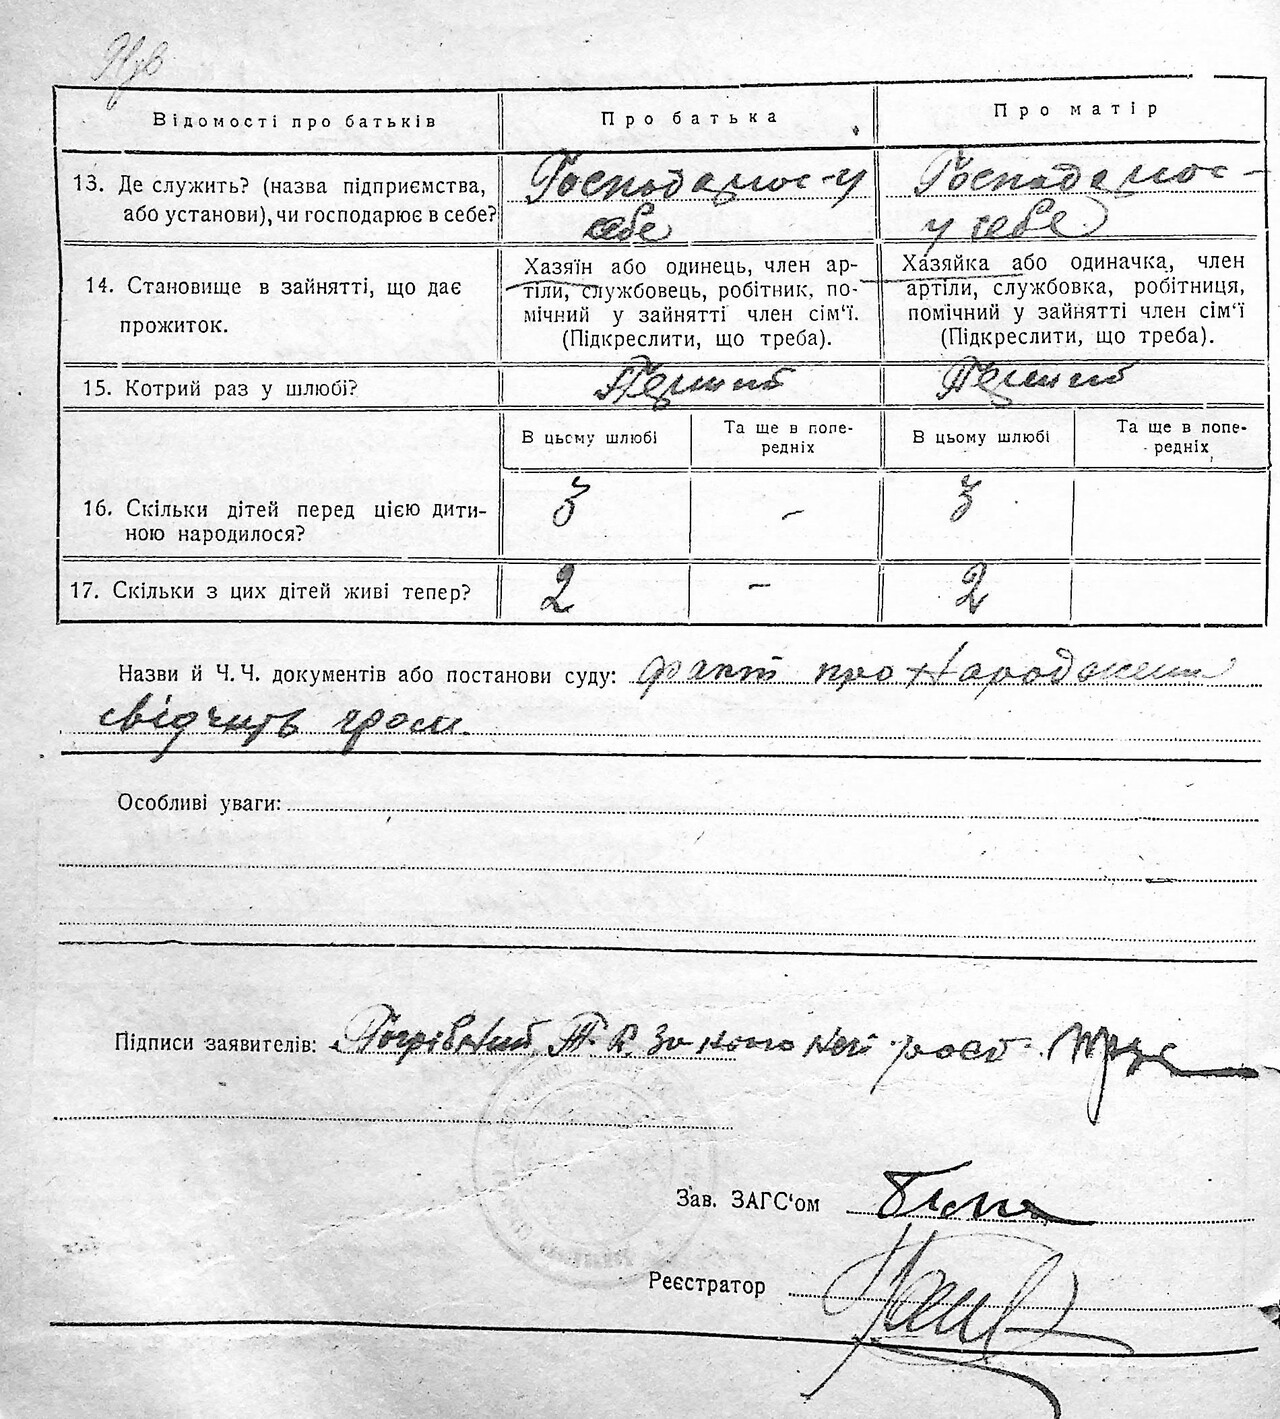 Відомості про батьків
Про батька
Про матір
13. Де служить? (назва підприємства,
або установи), чи господарює в себе?
Господарює у
себе
Господарює
у себе
14. Становище в зайнятті, що дає
прожиток.
Хазяїн або одинець, член ар-
тіли, службовець, робітник, по-
мічний у зайнятті член сім'ї.
(Підкреслити, що треба).
Хазяйка або одиначка, член
артіли, службовка, робітниця,
помічний у зайнятті член сім'ї
(Підкреслити, що треба).
15. Котрий раз у шлюбі?
Перший
Перший
В цьому шлюбі
Та ще в попе-
редніх
В цьому шлюбі
Та ще в попе-
редніх
16. Скільки дітей перед цією дити-
ною народилося?
3
-
3
17. Скільки з цих дітей живі тепер?
2
-
2
Назви й Ч. Ч. документів або постанови суду: факт про народження
свідчить
Особливі уваги:
Підписи заявителів: П. К. за кого
Зав. ЗАГС'ом
Реєстратор